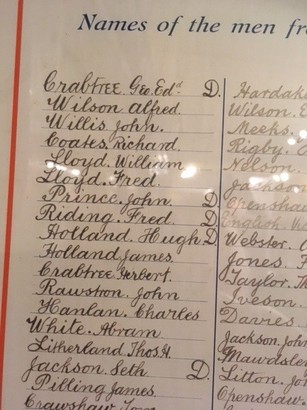 Names of the men fr
Crabtree Geo. Ed^d D.
Wilson Alfred
Willis John.
Coates. Richard
Lloyd. William
Lloyd. Fred.
Prince. John D
Riding. Fred D
Holland Hugh D
Holland James
Crabtree Herbert.
Rawston John
Hanlan. Charles
White. Abram
Litherland Thos. H.
Jackson. Seth D.
Pilling James
Crawshaw Tom
Hardak
Wilson. E
Meeks.
Rigby. C
Nelson
Jackson
Openshaw
English. Vi
Webster.
Jones. F
Taylor. Th
Iveson.
Davies
Jackson. John
Mawdsle
Litton. Jo
Openshaw